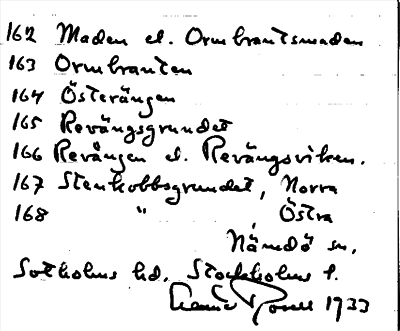 162 Maden el. Ormbrantsmaden
163 Ormbranten
164 Österängen
165 Revängsgrundet
166 Revängen el. Revängsviken.
167 Stenkobbsgrundet, Norra
168 " , Östra
Nämdö sn.
Sotholms hd. Stockholms l.
1933